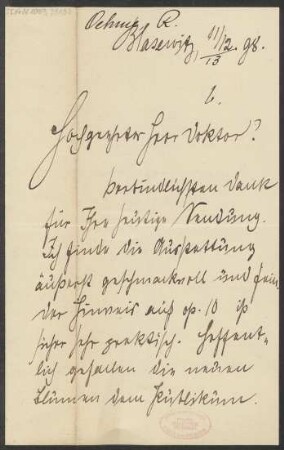 Oehme R.
Blasewitz, 11/2. 98.
13
6.
Hochgeehrter Herr Doktor!
Verbindlichsten Dank
für Ihre heutige Sendung.
Ich finde die Ausstattung
äußerst geschmackvoll und fein
der Hinweis auf op. 10 ist
sicher sehr praktisch. Hoffent-
lich gefallen die neuen
Blumen dem Publikum.